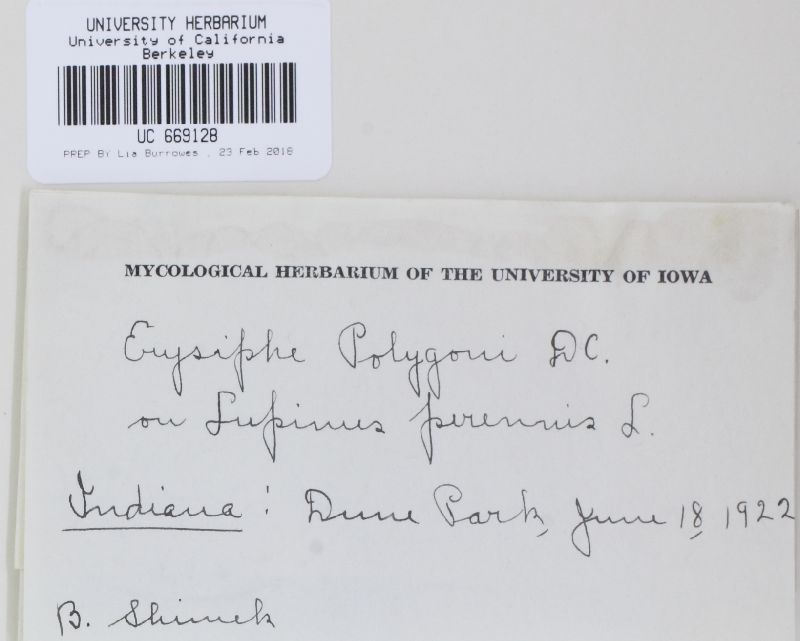 UNIVERSITY HERBARIUM
University of California
Berkeley
UC 669128
PREP BY Lia Burrowes , 23 Feb 2018
MYCOLOGICAL HERBARIUM OF THE UNIVERSITY OF IOWA
Erysiphe Polygoni DC.
on Lupinus perennis L.
Indiana: Dune Park, June 18, 1922
B. Shimek